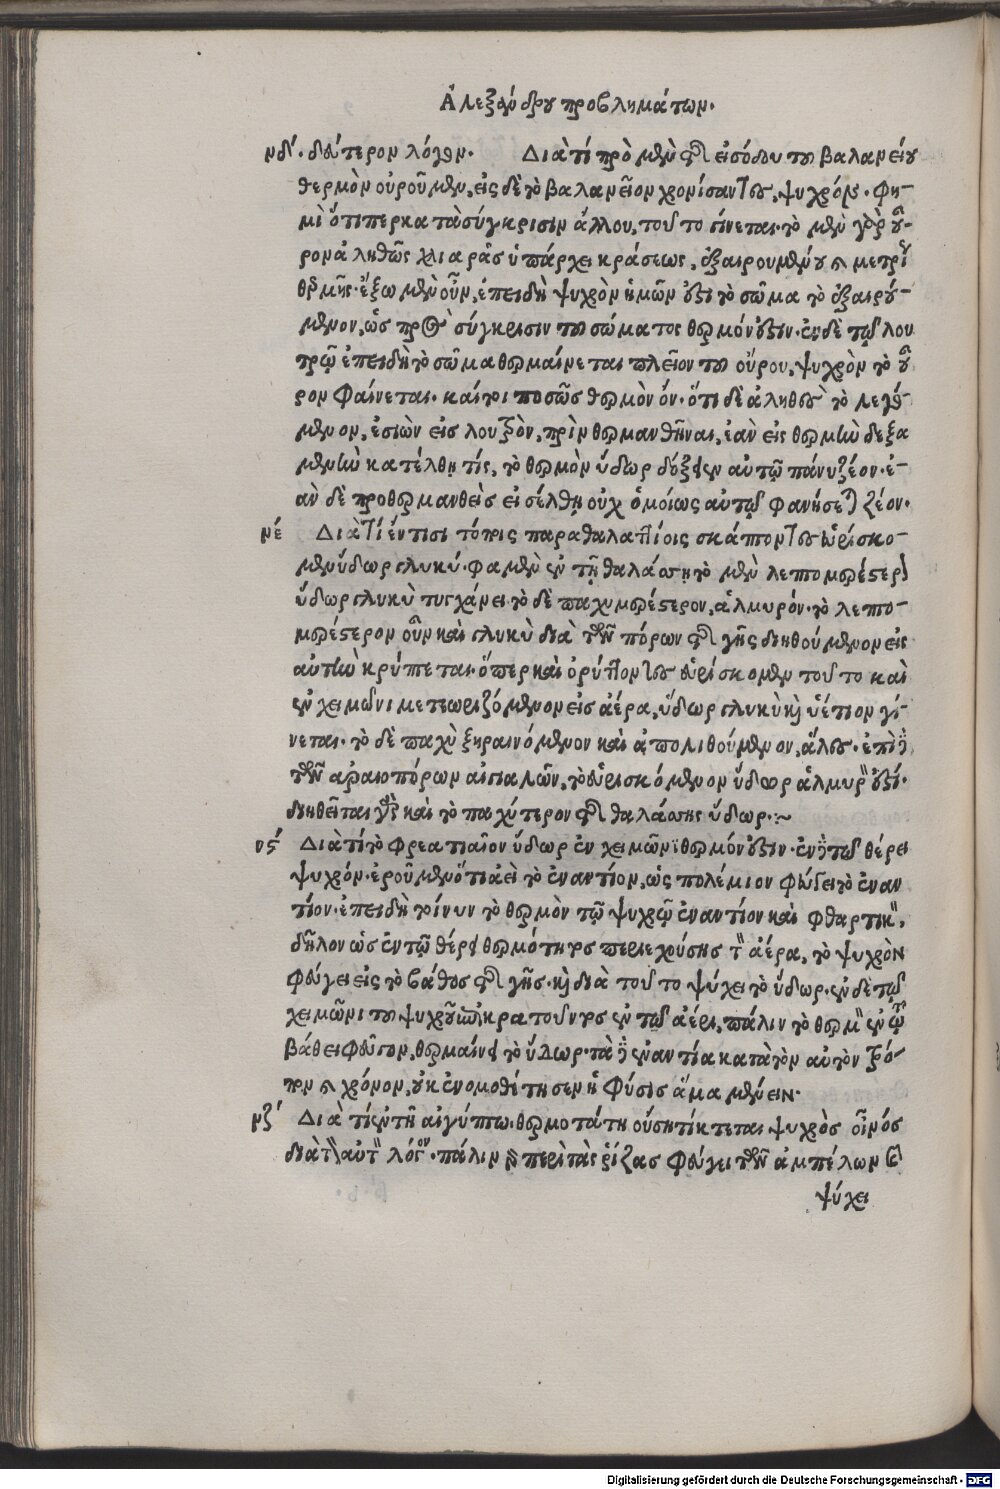 Ἀλεξάνδρου προβλημάτων.
νδ΄. δεύτερον λόγον. Διὰ τί πρὸ μὲν τῆς εἰσόδου τοῦ βαλανείου
θερμὸν οὐροῦμεν, εἰς δὲ τὸ βαλανεῖον χρονίσαντες, ψυχρόν. Φη-
μὶ ὅτι περ κατὰ σύγκρισιν ἄλλου, τοῦτο γίνεται. τὸ μὲν γὰρ οὖ-
ρον ἀληθῶς χλιαρᾶς ὑπάρχει κράσεως, ἐξαιρουμένου καὶ μετρίου
θερμῆς. ἔξω μὲν οὖν, ἐπειδὴ ψυχρὸν ἡμῶν ἐστι τὸ σῶμα τὸ ἐξαιρού-
μενον, ὡς πρὸς σύγκρισιν τοῦ σώματος θερμόν ἐστιν. ἐν δὲ τῷ λου
τρῷ ἐπειδὴ τὸ σῶμα θερμαίνεται πλεῖον τοῦ οὔρου, ψυχρὸν τὸ οὖ
ρον φαίνεται. καίτοι ποσῶς θερμὸν ὄν. ὅτι δὲ ἀληθὲς τὸ λεγό-
μενον, ἐσιὼν εἰς λουτρὸν, πρὶν θερμανθῆναι, ἐὰν εἰς θερμὴν δεξα
μενὴν κατέλθῃ τίς, τὸ θερμὸν ὕδωρ δόξειεν αὐτῷ πάνυ ζέον. ἐ-
ὰν δὲ προθερμανθεὶς εἰσέλθῃ οὐχ ὁμοίως αὐτῷ φανήσεται ζέον.
νέ Διὰ τί ἔν τισι τόποις παραθαλαττίοις σκάπτοντες εὑρίσκο-
μεν ὕδωρ γλυκύ. φαμὲν ἐν τῇ θαλάσσῃ τὸ μὲν λεπτομερέστερον
ὕδωρ γλυκὺ τυγχάνει. τὸ δὲ παχυμερέστερον, ἁλμυρόν. τὸ λεπτο-
μερέστερον οὖν καὶ γλυκὺ διὰ τῶν πόρων τῆς γῆς διηθούμενον εἰς
αὐτὴν κρύπτεται. ὅπερ καὶ ὀρύττοντες εὑρίσκομεν τοῦτο καὶ
ἐν χειμῶνι μετεωριζόμενον εἰς ἀέρα, ὕδωρ γλυκὺ καὶ ὑέτιον γί-
νεται. τὸ δὲ παχὺ ξηραινόμενον καὶ ἀπολιθούμενον, ἅλες. ἐπὶ δὲ
τῶν ἀραιοπόρων αἰγιαλῶν, τὸ εὑρισκόμενον ὕδωρ ἁλμυρόν ἐστί.
διηθεῖται γὰρ καὶ τὸ παχύτερον τῆς θαλάσσης ὕδωρ. :~
νϛ΄ Διὰ τί τὸ φρεατιαῖον ὕδωρ ἐν χειμῶνι θερμόν ἐστιν. ἐν δὲ τῷ θέρει
ψυχρόν. ἐροῦμεν ὅτι ἀεὶ τὸ ἐναντίον, ὡς πολέμιον φεύγει τὸ ἐναν
τίον. ἐπειδὴ τοίνυν τὸ θερμὸν τῷ ψυχρῷ ἐναντίον καὶ φθαρτικὸν,
δῆλον ὡς ἐν τῷ θέρει θερμότητος περιεχούσης τὸν ἀέρα, τὸ ψυχρὸν
φεύγει εἰς τὸ βάθος τῆς γῆς. καὶ διὰ τοῦτο ψύχει τὸ ὕδωρ. ἐν δὲ τῷ
χειμῶνι τοῦ ψυχροῦ ἐπικρατοῦντος ἐν τῷ ἀέρι, πάλιν τὸ θερμὸν ἐν τῷ
βάθει φεῦγον, θερμαίνει τὸ ὕδωρ. τὰ δὲ ἐναντία κατὰ τὸν αὐτὸν τρό-
πον καὶ χρόνον, οὐκ ἐνομοθέτησεν ἡ φύσις ἅμα μένειν.
νζ΄ Διὰ τί ἐν τῇ αἰγύπτῳ, θερμοτάτῃ οὔσῃ τίκτεται ψυχρὸς οἶνός
διὰ τὸν αὐτὸν λόγον. πάλιν περὶ τὰς ῥίζας φεύγει τῶν ἀμπέλων καὶ
ψύχει
Digitalisierung gefördert durch die Deutsche Forschungsgemeinschaft - DFG